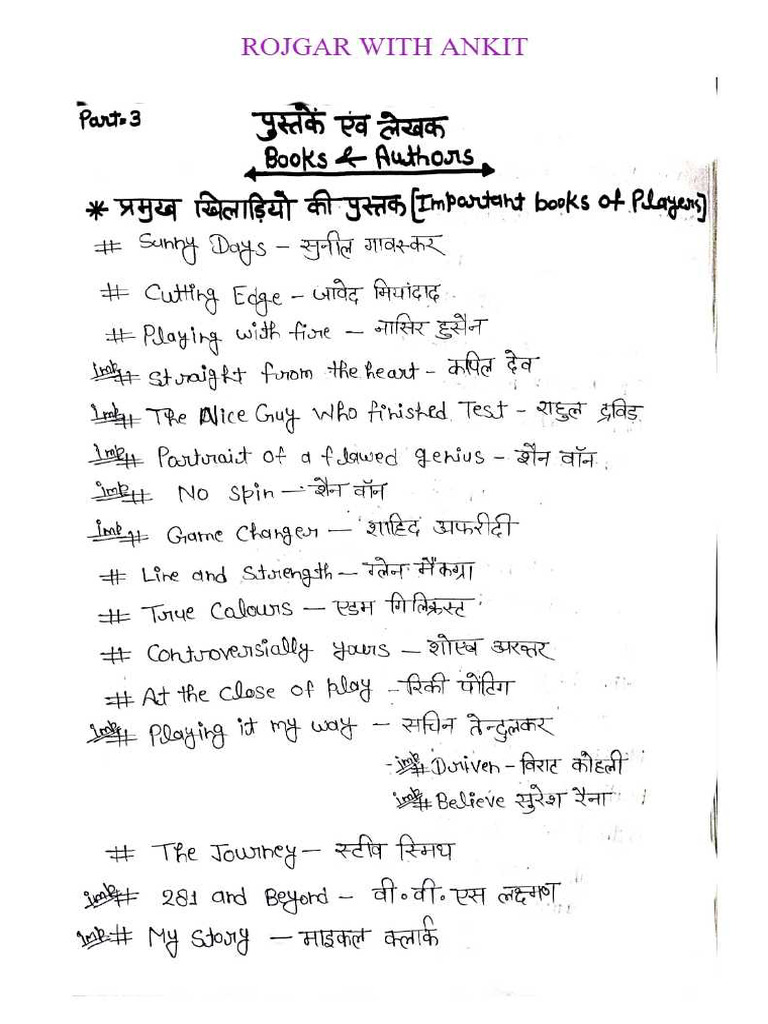 ROJGAR WITH ANKIT
Part-3
पुस्तकें एंव लेखक
Books & Authors
* प्रमुख खिलाड़ियो की पुस्तक [Important books of Players]
# Sunny Days - सुनील गावस्कर
# Cutting Edge - जावेद मियांदाद
# Playing with fire - नासिर हुसैन
imp # Straight from the heart - कपिल देव
imp # The Nice Guy Who finished Test - राहुल द्रविड़
imp # Partrait of a flawed genius - शैन वॉन
imp # No spin - शैन वॉन
imp # Game Changer - शाहिद अफरीदी
# Line and Strength - ग्लेन मैकग्रा
# True Colours - एडम गिलक्रिस्ट
# Controversially yours - शोएब अख्तर
# At the close of play - रिकी पोंटिग
imp # Playing it my way - सचिन तेन्दुलकर
- imp # Driven - विराट कोहली
imp # Believe सुरेश रैना
# The Journey - स्टीव स्मिथ
imp # 281 and Beyond - वी.वी.एस लक्ष्मण
imp # My Story - माइकल क्लार्क